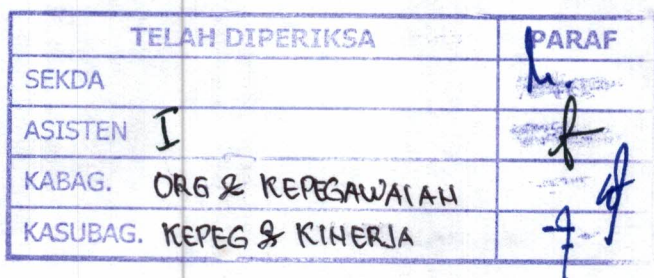 TELAH DIPERIKSA PARAF
SEKDA
ASISTEN I
KABAG. ORG & KEPEGAWAIAN
KASUBAG. KEPEG & KINERJA